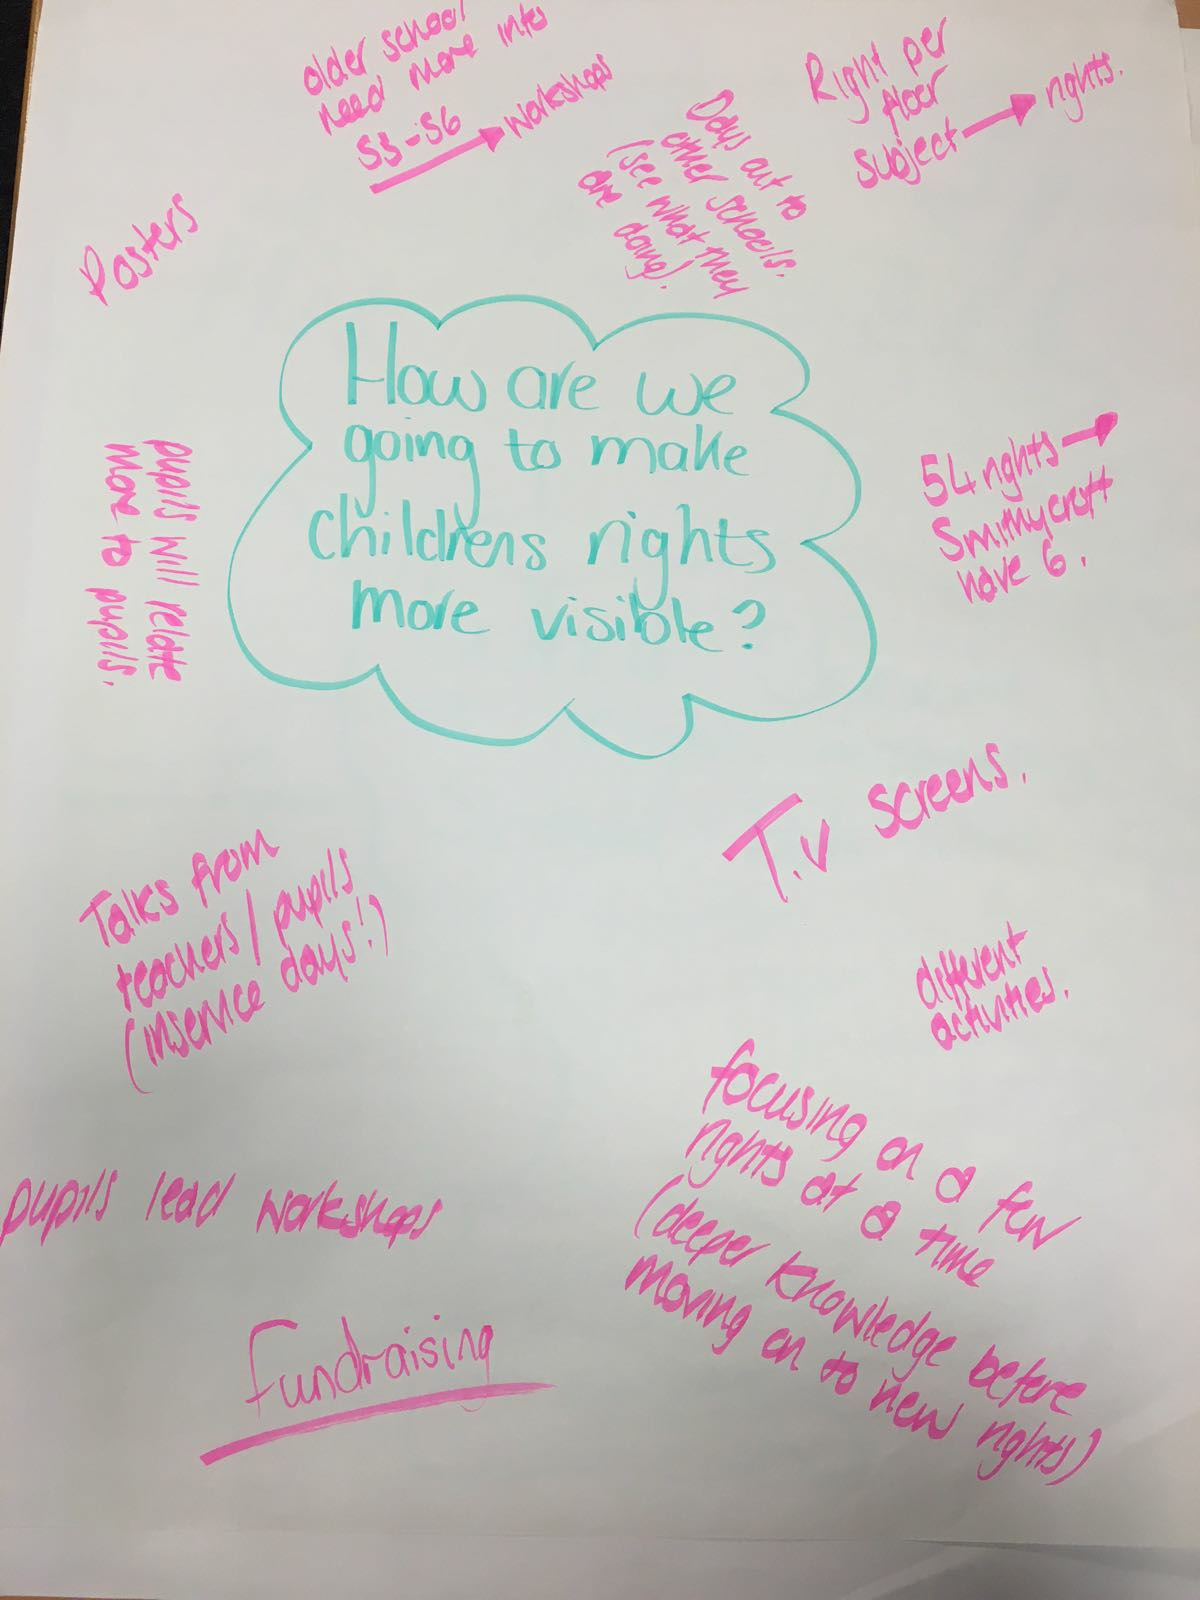 older school
need more into
S3-S6 → workshops
Days out to
other schools.
(see what they
are doing).
Right per
floor
subject → rights.
Posters
How are we
going to make
childrens rights
more visible?
54 rights →
Smithycroft
have 6.
pupils will relate
more to pupils.
T.v screens.
Talks from
teachers/pupils
(inservice days!)
different
activities.
focusing on a few
rights at a time
(deeper knowledge before
moving on to new rights)
pupils lead workshops
Fundraising